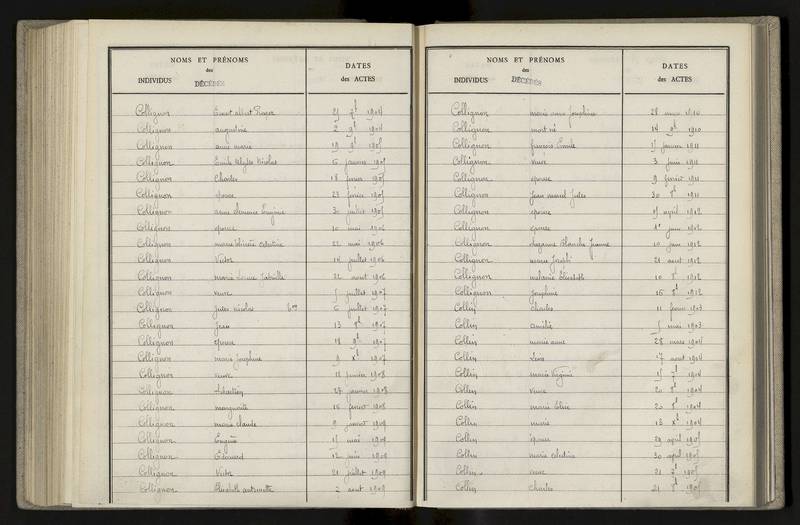 NOMS ET PRÉNOMS
des
INDIVIDUS DÉCÉDÉS
DATES
des ACTES
Collignon 1904
Collignon augustine 2 9b 1904
Collignon anne marie 19 9b 1905
Collignon Emile Nicolas 6 janvier 1905
Collignon Charles 18 février 1905
Collignon épouse 23 février 1905
Collignon anne Clémence Eugénie 30 juillet 1905
Collignon épouse 10 mai 1906
Collignon marie célestine 22 mai 1906
Collignon Victor 14 juillet 1906
Collignon marie Louise 22 aout 1906
Collignon veuve juillet 1907
Collignon jules nicolas 6 juillet 1907
Collignon Jean 13 8b 1907
Collignon épouse 18 9b 1907
Collignon marie Josephine 9 xb 1907
Collignon veuve 11 janvier 1908
Collignon Sébastien 27 janvier 1908
Collignon marguerite 16 février 1908
Collignon marie claude 9 janvier 1909
Collignon mai 1909
Collignon Edouard 12 juin 1909
Collignon Victor 21 juillet 1909
Collignon Elisabeth antoinette 2 aout 1909
NOMS ET PRÉNOMS
des
INDIVIDUS DÉCÉDÉS
DATES
des ACTES
Collignon marie anne Josephine 28 mars 1910
Collignon mort né 14 9b 1910
Collignon françois Emile janvier 1911
Collignon veuve 3 juin 1911
Collignon épouse 9 février 1911
Collignon Jean marcel Jules 30 1911
Collignon épouse april 1912
Collignon épouse 1er juin 1912
Collignon Suzanne Blanche Jeanne 10 juin 1912
Collignon marie Joseph 21 aout 1912
Collignon mélanie Elisabeth 10 8b 1912
Collignon Joséphine 16 8b 1912
Collin Charles 11 février 1903
Collin amélie mai 1903
Collin marie anne 28 mars 1904
Collin Léon 17 aout 1904
Collin marie Virginie 1904
Collin veuve 20 8b 1904
Collin marie Elise 20 8b 1904
Collin marie 13 xb 1904
Collin épouse 29 april 1905
Collin marie célestine 30 april 1905
Collin veuve 21 1905
Collin Charles 21 8b 1905